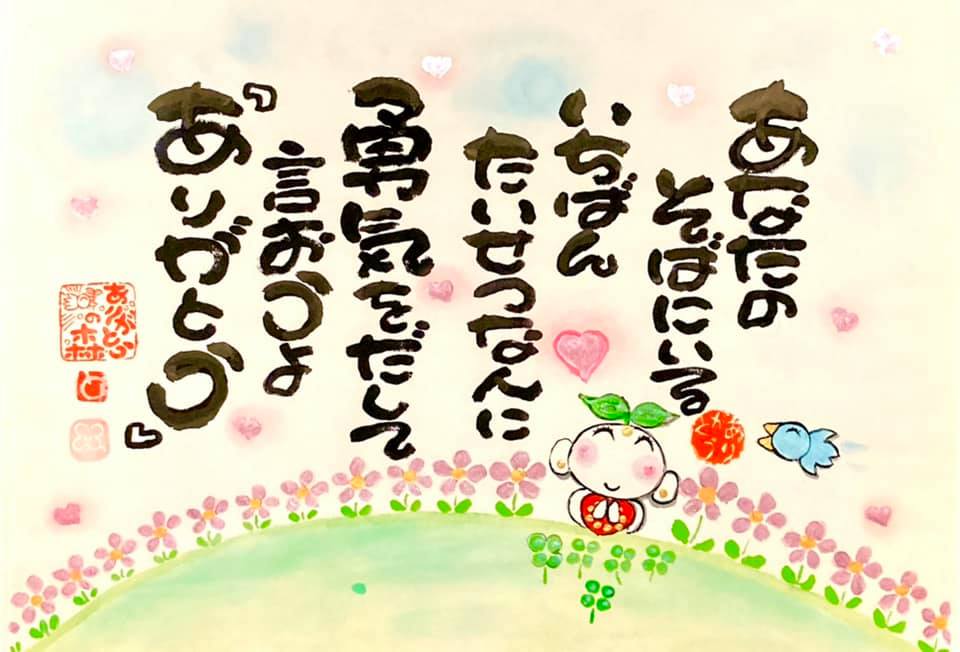 あなたの
そばにいる
いちばん
たいせつな人に
勇気をだして
言おうよ
『ありがとう』
ありがとう
の森